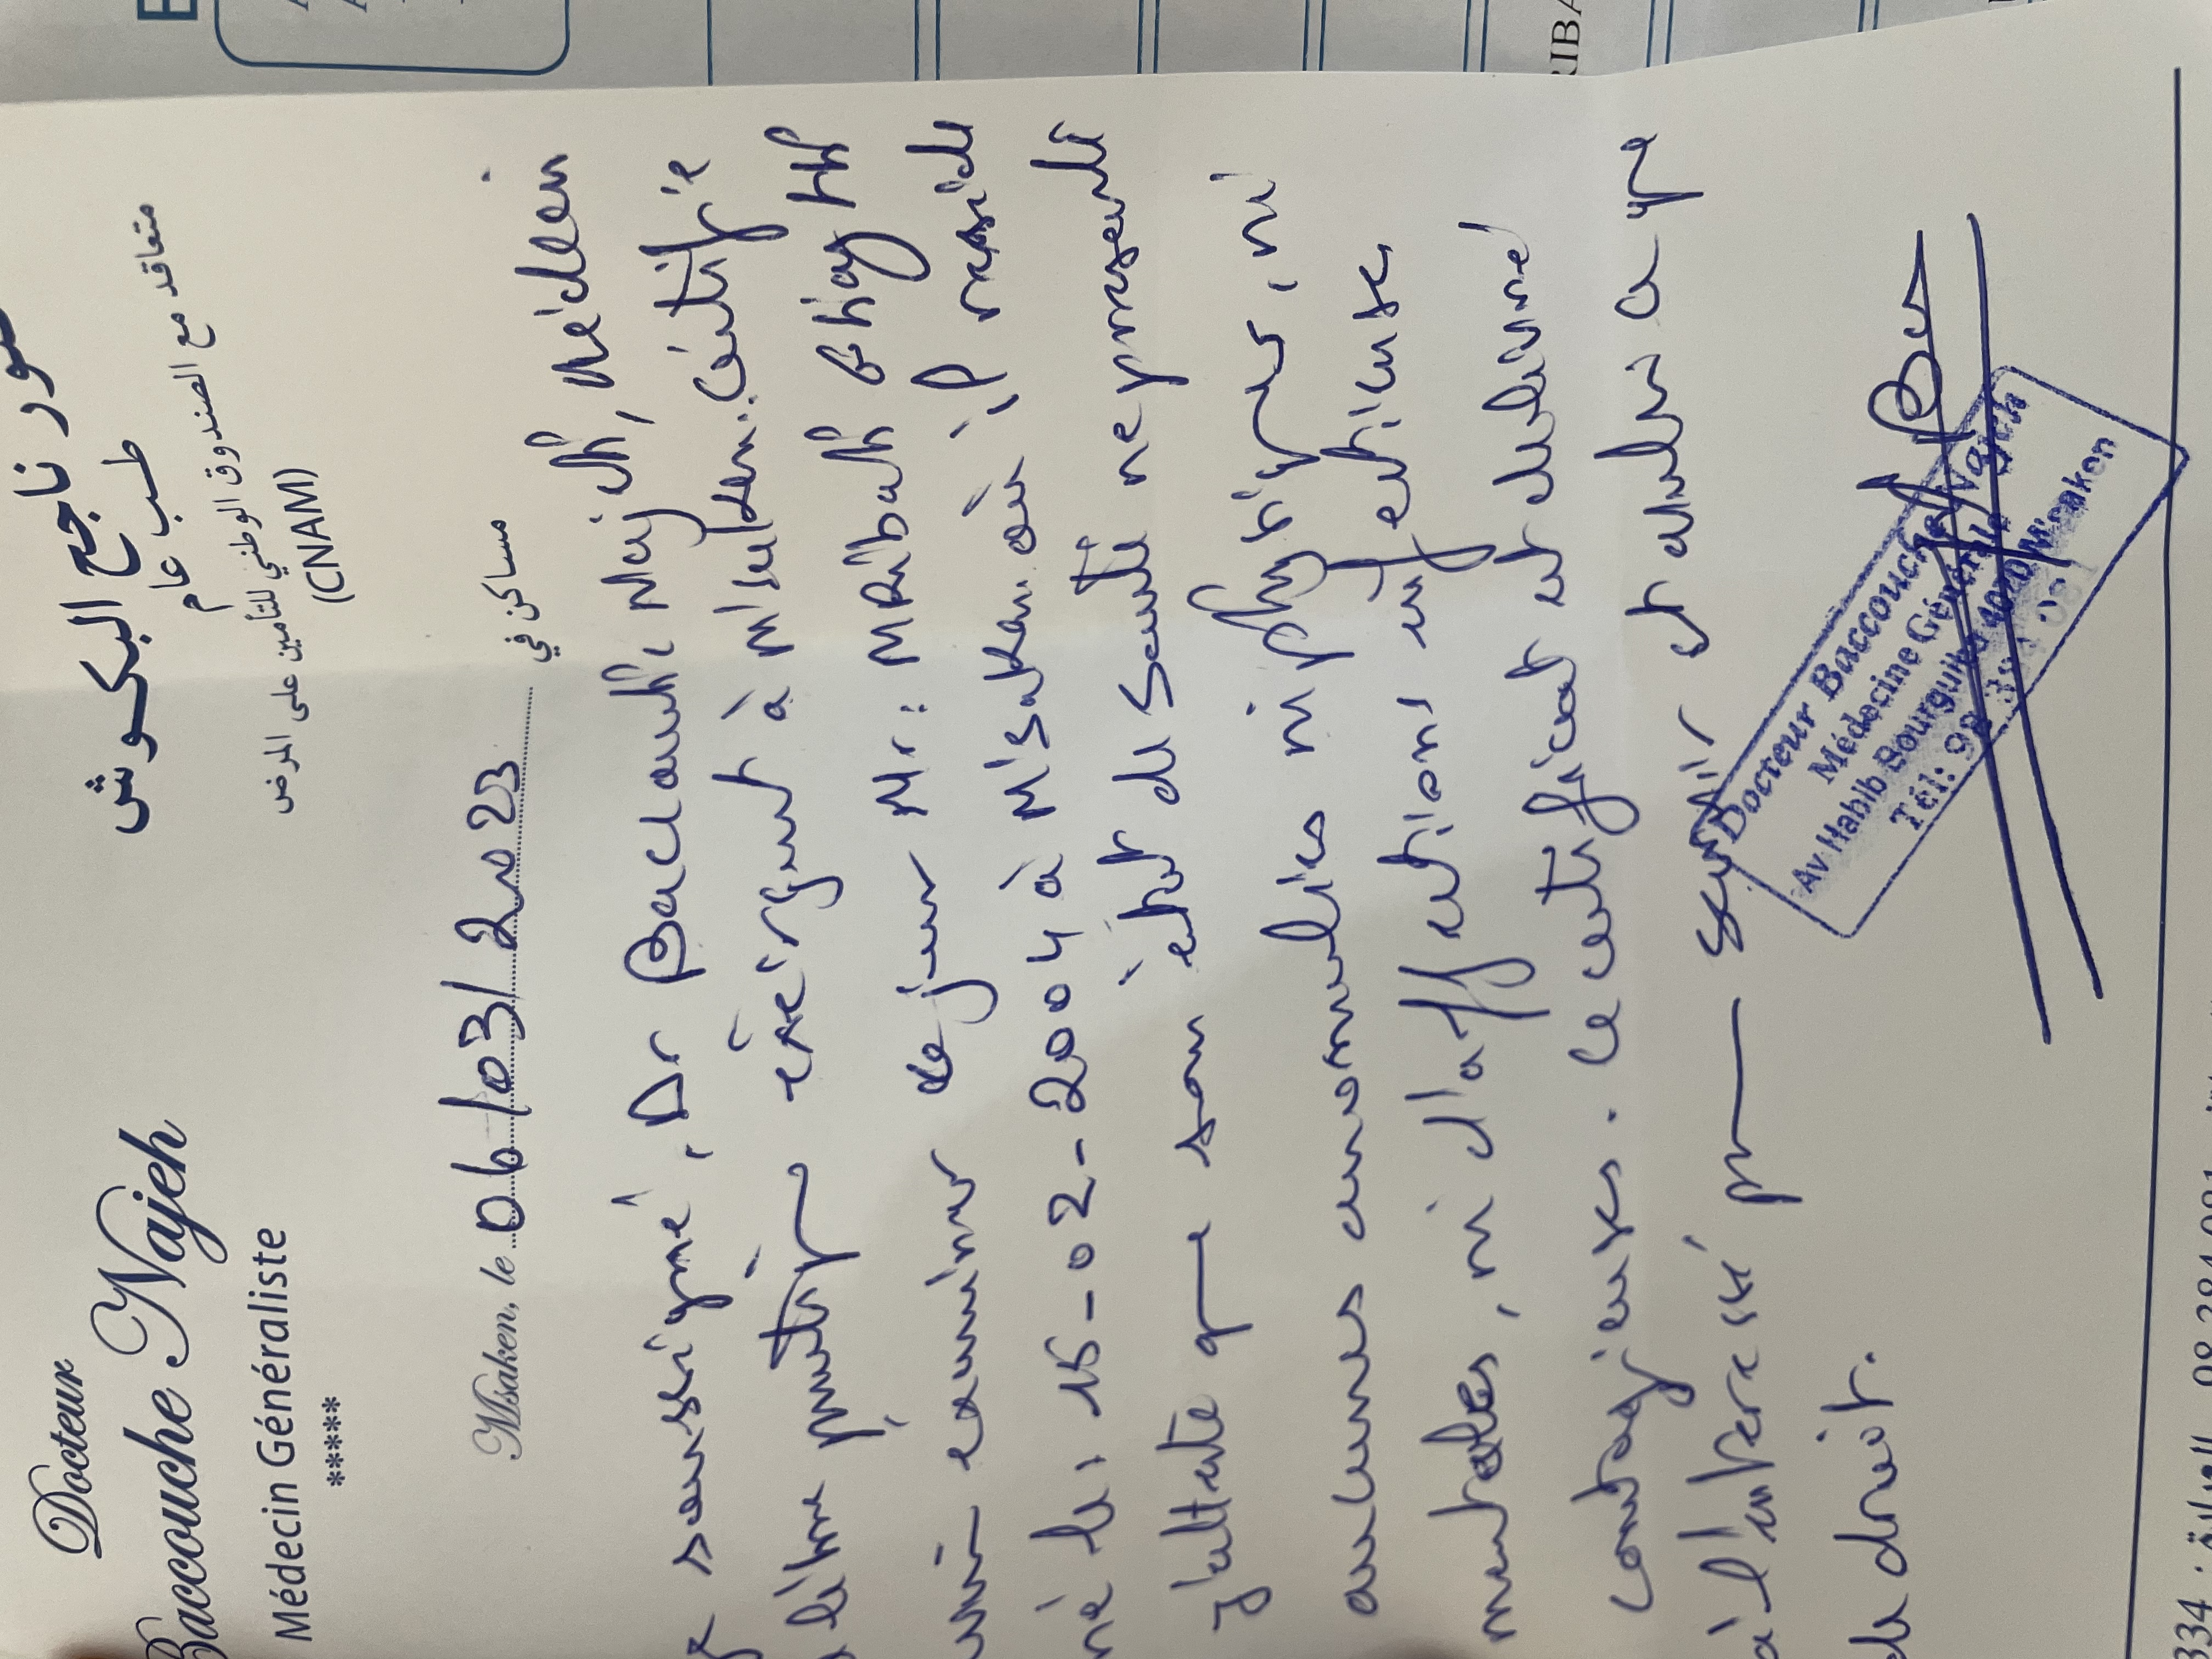 Docteur
Baccouche Najeh
Médecin Généraliste
*****
ناجح البكوش
طب عام
متعاقد مع الصندوق الوطني للتأمين على المرض
(CNAM)
Msaken, le 06/03/2023 مساكن في
soussigné, Dr Baccouche Najeh, médecin
exerçant à M'saken. certifie
examiner ce jour Mr:
né le: 15-02-2004 à M'saken. où il réside
J'atteste que son état de santé ne présente
aucunes anomalies ni physiques, ni
mentales, ni d'affections infectieuses
contagieuses. Ce certificat est délivré
à l'intéressé pour servir et valoir ce que
de droit.
Docteur Baccouche Najeh
Médecine Générale
Av Habib Bourguiba 4070 M'saken
Tél: 98 384 081
RIBA